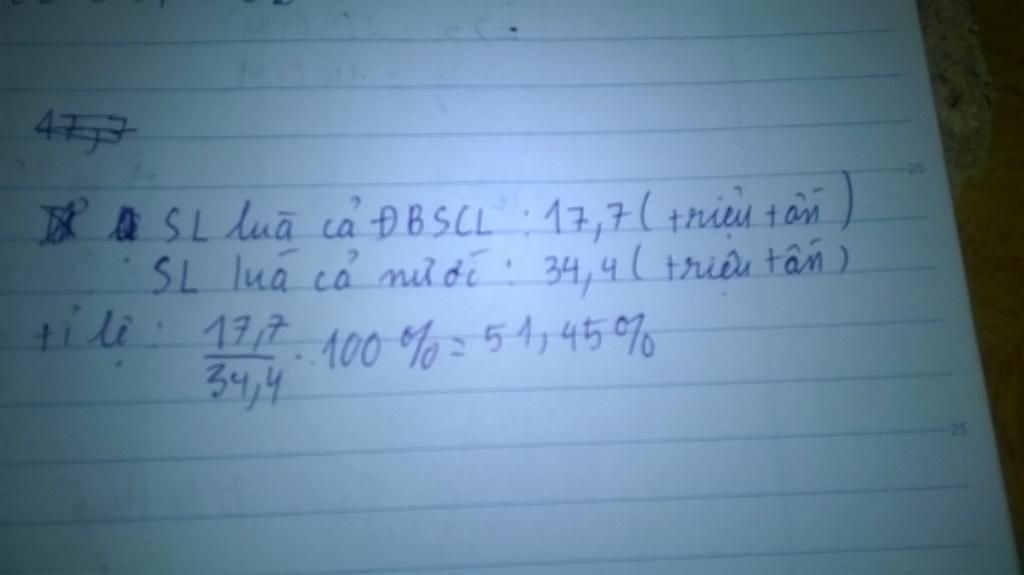 47,7
SL luá cả ĐBSCL : 17,7 ( triệu tấn )
SL luá cả nước : 34,4 ( triệu tấn )
tỉ lệ : 17,7/34,4 . 100 % = 51,45 %
20
25